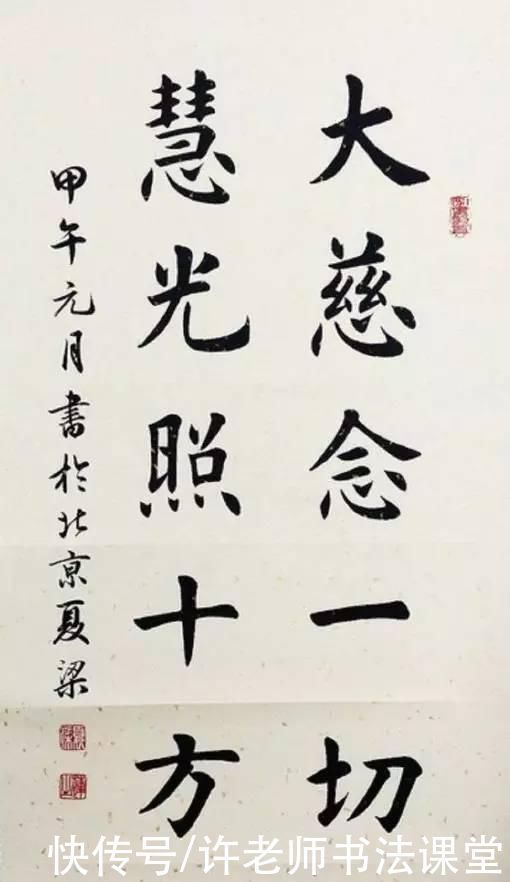 大慈念一切
慧光照十方
甲午元月書於北京夏梁
快传号/许老师书法课堂